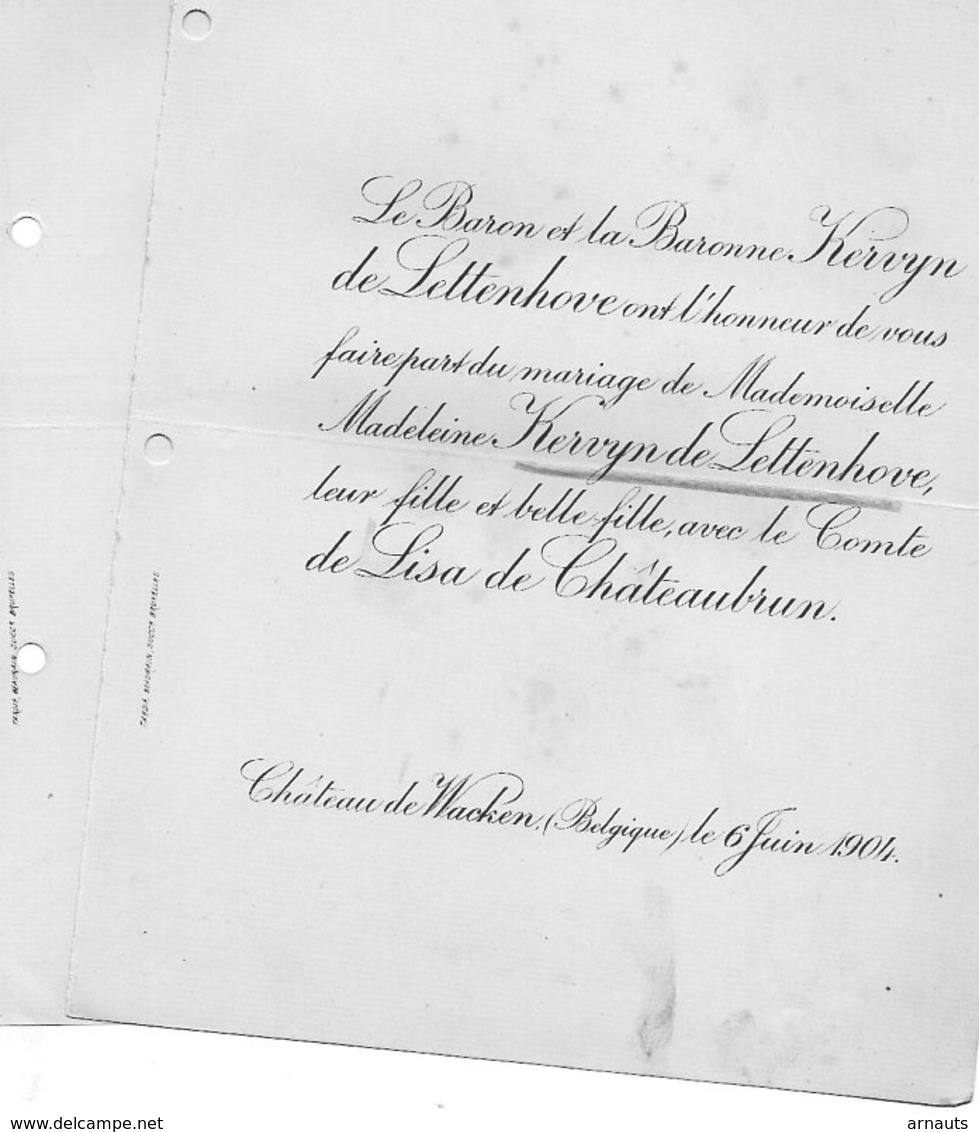 Le Baron et la Baronne Kervyn
de Lettenhove ont l'honneur de vous
faire part du mariage de Mademoiselle
Madeleine Kervyn de Lettenhove,
leur fille et belle-fille, avec le Comte
de Lisa de Châteaubrun.
Château de Wacken, (Belgique) le 6 Juin 1904.
BRUXELLES
BRUXELLES
www.delcampe.net
arnauts